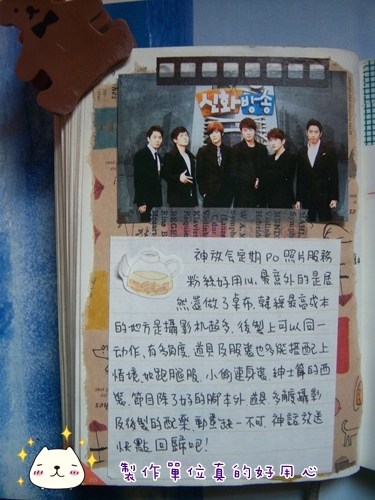 신화방송
神放會定期PO照片服務
粉絲好用心,最意外的是居
然還做了桌布,
的地方是攝影机超多,後製上可以同一
動作,有多角度,道具及服裝也多能搭配上
情境,如跑腿服,小偷連身裝,紳士算的西
裝,節目除了好的脚本外 道具,多嚴攝影
及後製的配樂,動畫缺一不可,神話放送
快點回歸吧!
製作單位真的好用心